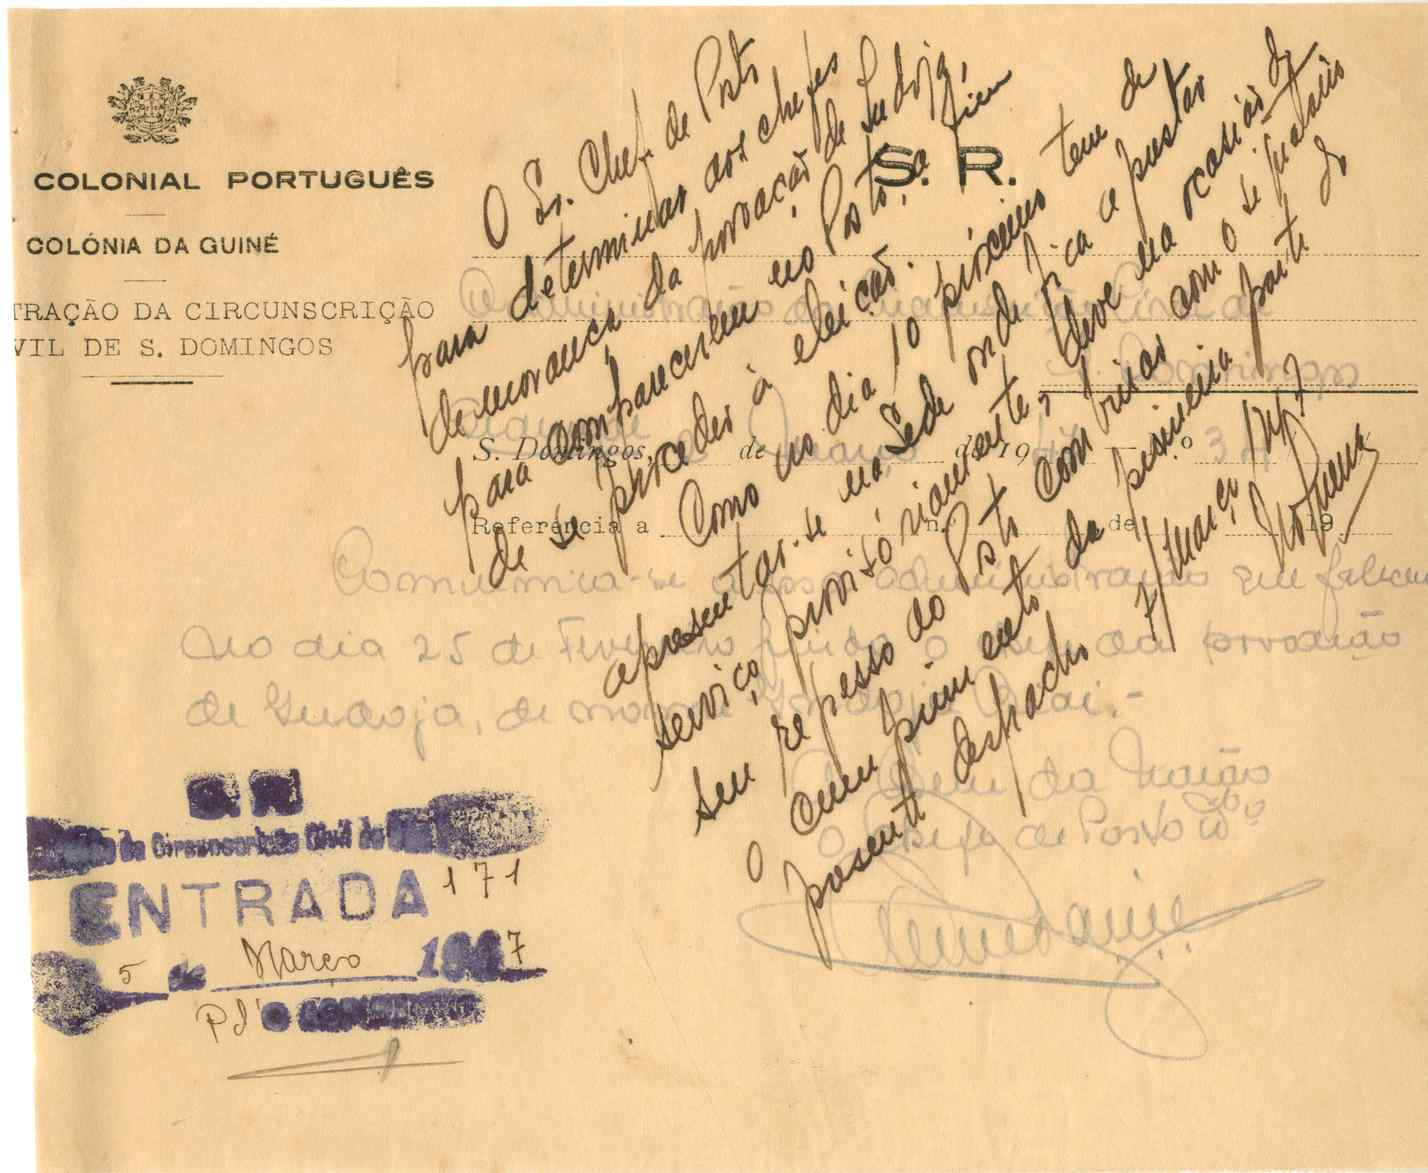 COLONIAL PORTUGUÊS
COLÓNIA DA GUINÉ
TRAÇÃO DA CIRCUNSCRIÇÃO
VIL DE S. DOMINGOS
S. R.
Administração da Circunscrição Civil de
S. Domingos
S. Domingos, de Março de 19 o 34
Referência a n. de 19
O Sr. Chefe de Posto
para determinar aos chefes
de morança da povoação de Sudoja,
para comparecerem no Posto, a fim
de se proceder à eleição.
Como no dia 10 próximo tem de
apresentar-se na Sede onde fica a prestar
serviço provisóriamente, deve na ocasião do
seu regresso do Posto combinar com o
o cumprimento da primeira parte do
presente despacho 7/Março/947
Comunica-se a essa administração que faleceu
no dia 25 de Fevereiro findo o chefe da povoação
de Sudoja, de nome
A Bem da Nação
O Chefe de Posto
da Circunscrição Civil de
ENTRADA 171
5 de Março 1947